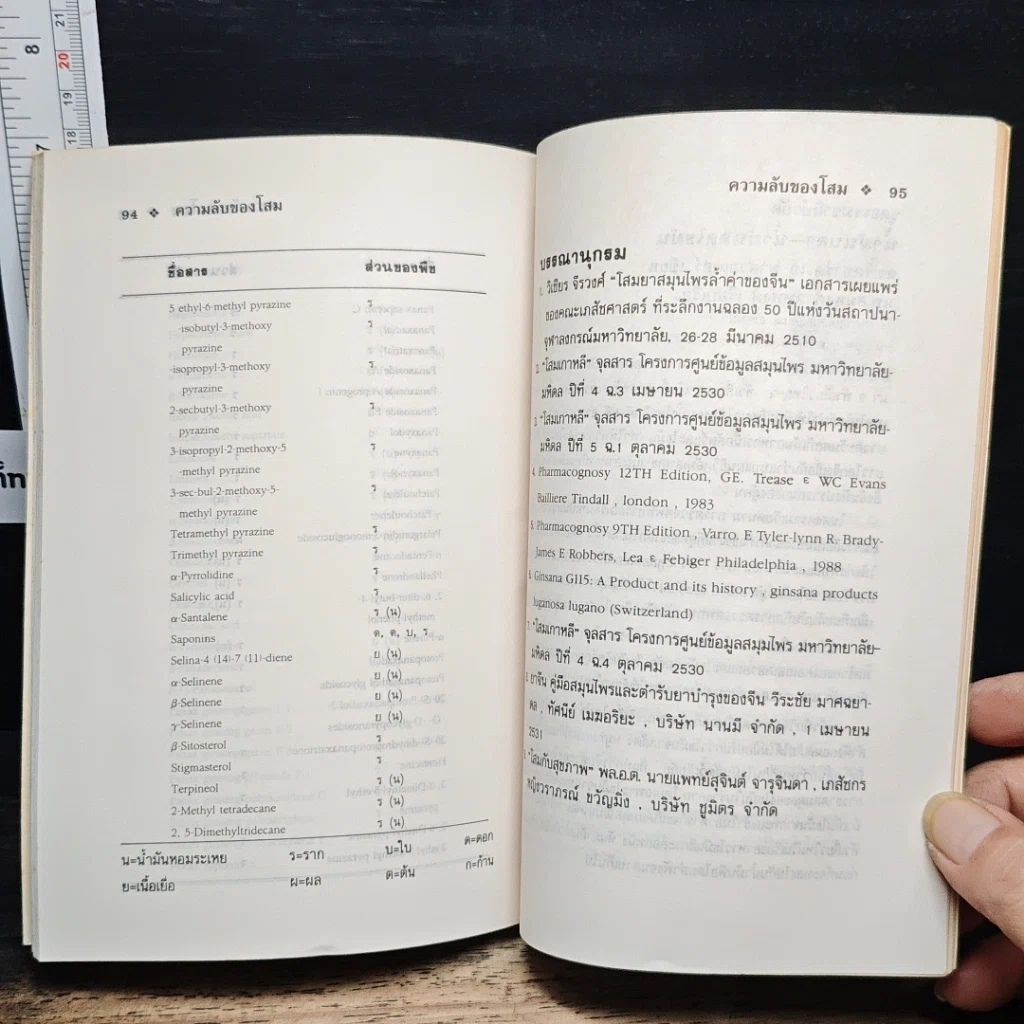 8
7
21
20
19
18
ก็ก
94 ❖ ความลับของโสม
ชื่อสาร ส่วนของพืช
5 ethyl-6-methyl pyrazine ร
-isobutyl-3-methoxy ร
pyrazine
-isopropyl-3-methoxy ร
pyrazine
2-secbutyl-3-methoxy ร
pyrazine
3-isopropyl-2-methoxy-5 ร
-methyl pyrazine
3-sec-bul-2-methoxy-5- ร
methyl pyrazine
Tetramethyl pyrazine ร
Trimethyl pyrazine ร
α-Pyrrolidine ร
Salicylic acid ร
α-Santalene ร (น)
Saponins ด, ต, บ, ร
Selina-4 (14)-7 (11)-diene ย (น)
α-Selinene ย (น)
β-Selinene ย (น)
γ-Selinene ย (น)
β-Sitosterol ร
Stigmasterol ร
Terpineol ร (น)
2-Methyl tetradecane ร (น)
2, 5-Dimethyltridecane ร (น)
น=น้ำมันหอมระเหย ร=ราก บ=ใบ ด=ดอก
ย=เนื้อเยื่อ ผ=ผล ต=ต้น ก=ก้าน
ความลับของโสม ❖ 95
บรรณานุกรม
1. วิเชียร จีรวงศ์ "โสมยาสมุนไพรล้ำค่าของจีน" เอกสารเผยแพร่
ของคณะเภสัชศาสตร์ ที่ระลึกงานฉลอง 50 ปีแห่งวันสถาปนา-
จุฬาลงกรณ์มหาวิทยาลัย, 26-28 มีนาคม 2510
2. "โสมเกาหลี" จุลสาร โครงการศูนย์ข้อมูลสมุนไพร มหาวิทยาลัย-
มหิดล ปีที่ 4 ฉ.3 เมษายน 2530
3. "โสมเกาหลี" จุลสาร โครงการศูนย์ข้อมูลสมุนไพร มหาวิทยาลัย-
มหิดล ปีที่ 5 ฉ.1 ตุลาคม 2530
4. Pharmacognosy 12TH Edition, GE. Trease & WC Evans
Bailliere Tindall , london , 1983
5. Pharmacognosy 9TH Edition , Varro. E Tyler-lynn R. Brady-
James E Robbers, Lea & Febiger Philadelphia , 1988
6. Ginsana G115: A Product and its history , ginsana products
luganosa lugano (Switzerland)
7. "โสมเกาหลี" จุลสาร โครงการศูนย์ข้อมูลสมุนไพร มหาวิทยาลัย-
มหิดล ปีที่ 4 ฉ.4 ตุลาคม 2530
8. ยาจีน คู่มือสมุนไพรและตำรับยาบำรุงของจีน วีระชัย มาศฉยา-
ดล , ทัศนีย์ เมฆอริยะ , บริษัท นานมี จำกัด , 1 เมษายน
2531
"โสมกับสุขภาพ" พล.อ.ต. นายแพทย์สุจินต์ จารุจินดา , เภสัชกร
หญิงวราภรณ์ ขวัญมิ่ง , บริษัท ชูมิตร จำกัด